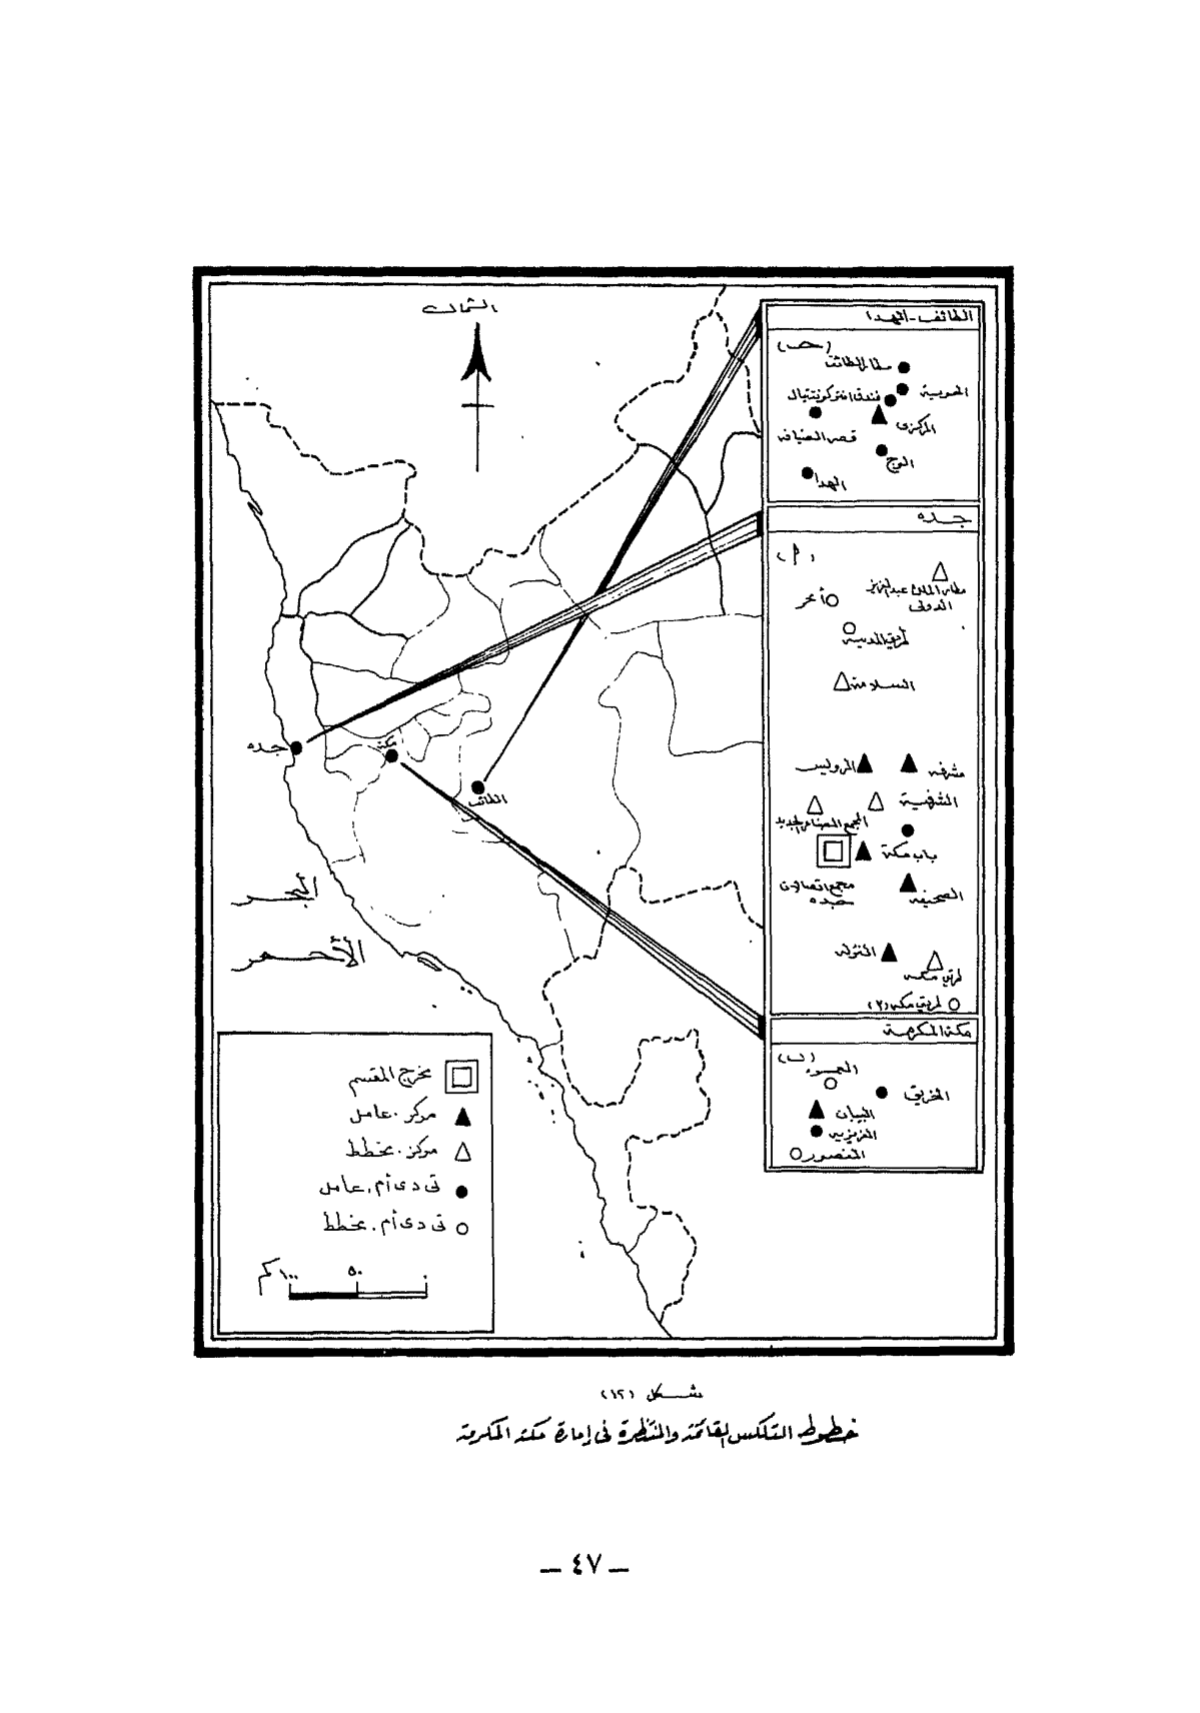 الشمال
الطائف - الهدا
(حـ)
مطار الطائف
الحوية
فندق انتركونتيننتال
المركزى
قصر الضيافه
الوج
الهدا
جــده
(أ)
مطار الملك عبدالعزيز
الدولى
أبحر
طريق المدينة
السلامة
مشرفه
الرويس
الشرفية
المجمع الصناعى الجديد
باب مكة
مجمع اتصالات
جده
الصحيفه
النزله
طريق مكة
طريق مكه (٢)
مكة المكرمة
(ب)
الخريق
البيبان
العزيزيه
المنصور
جده
مكة
الطائف
البحـر
الأحـمـر
مخرج المقسم
مركز . عامل
مركز . مخطط
تى دى أم . عامل
تى دى أم . مخطط
٠ ٥٠ ١٠٠ كم
شـكل (١٢)
خطوط التلكس القائمة والمنتظرة فى إمارة مكة المكرمة
— ٤٧ —